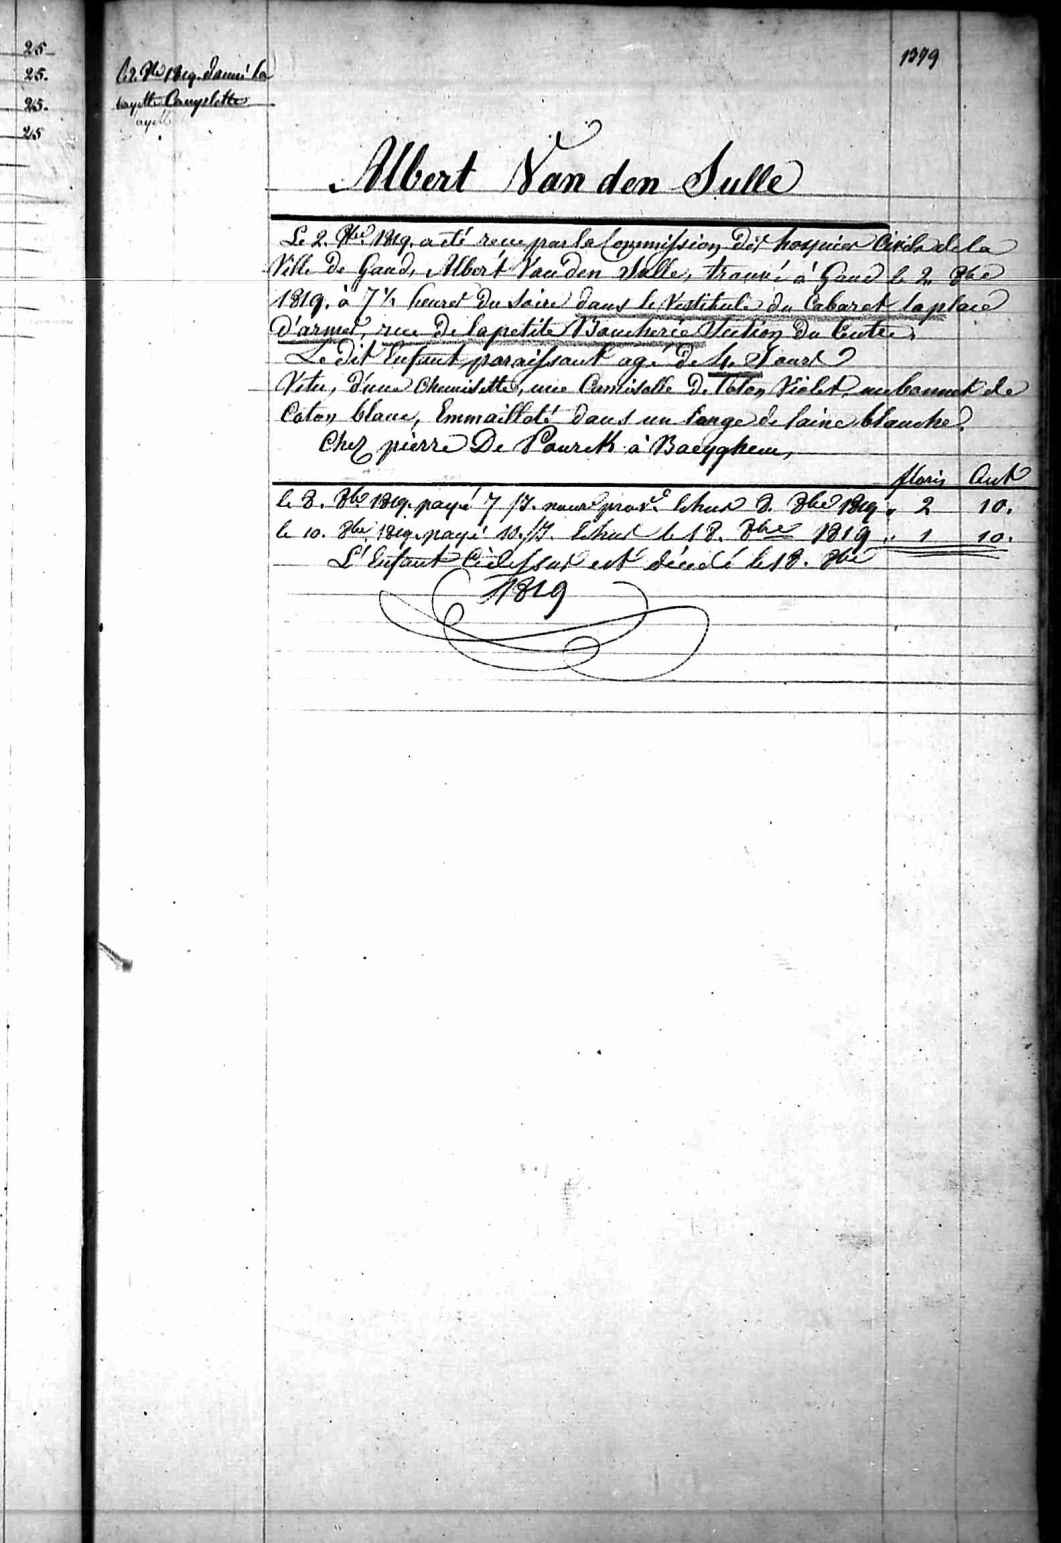 25
25.
25.
25
1379
le 2. 8bre 1819. donné la
layette Complette
Albert Van den Sulle
Le 2. 8bre 1819. a été reçu par la Commission des hospices Civils de la
Ville de Gand, Albert Van den Sulle, trouvé à Gand le 2. 8bre
1819. à 7 ½ heures du Soire dans le Vestibule du Cabaret la place
d'armes, rue de la petite Boucherie Section du Centre,
Le dit Enfant paraissant agé de 4. Jours
Vetu, d'une Chemisette, une Camisolle de Coton Violet, un bonnet de
Coton blanc, Emmailloté dans un Lange de laine blanche.
Chez pièrre De Paurck à Baeyghem,
floris Cent
le 8. 8bre 1819. payé 7 Js. nourre prove. Echus 8. 8bre 1819 " 2 10.
le 10. 8bre 1819. payé 10. Js. Echus le 18. 8bre 1819 " 1 10.
L'Enfant Cidessus est décédé le 18. 8bre
1819